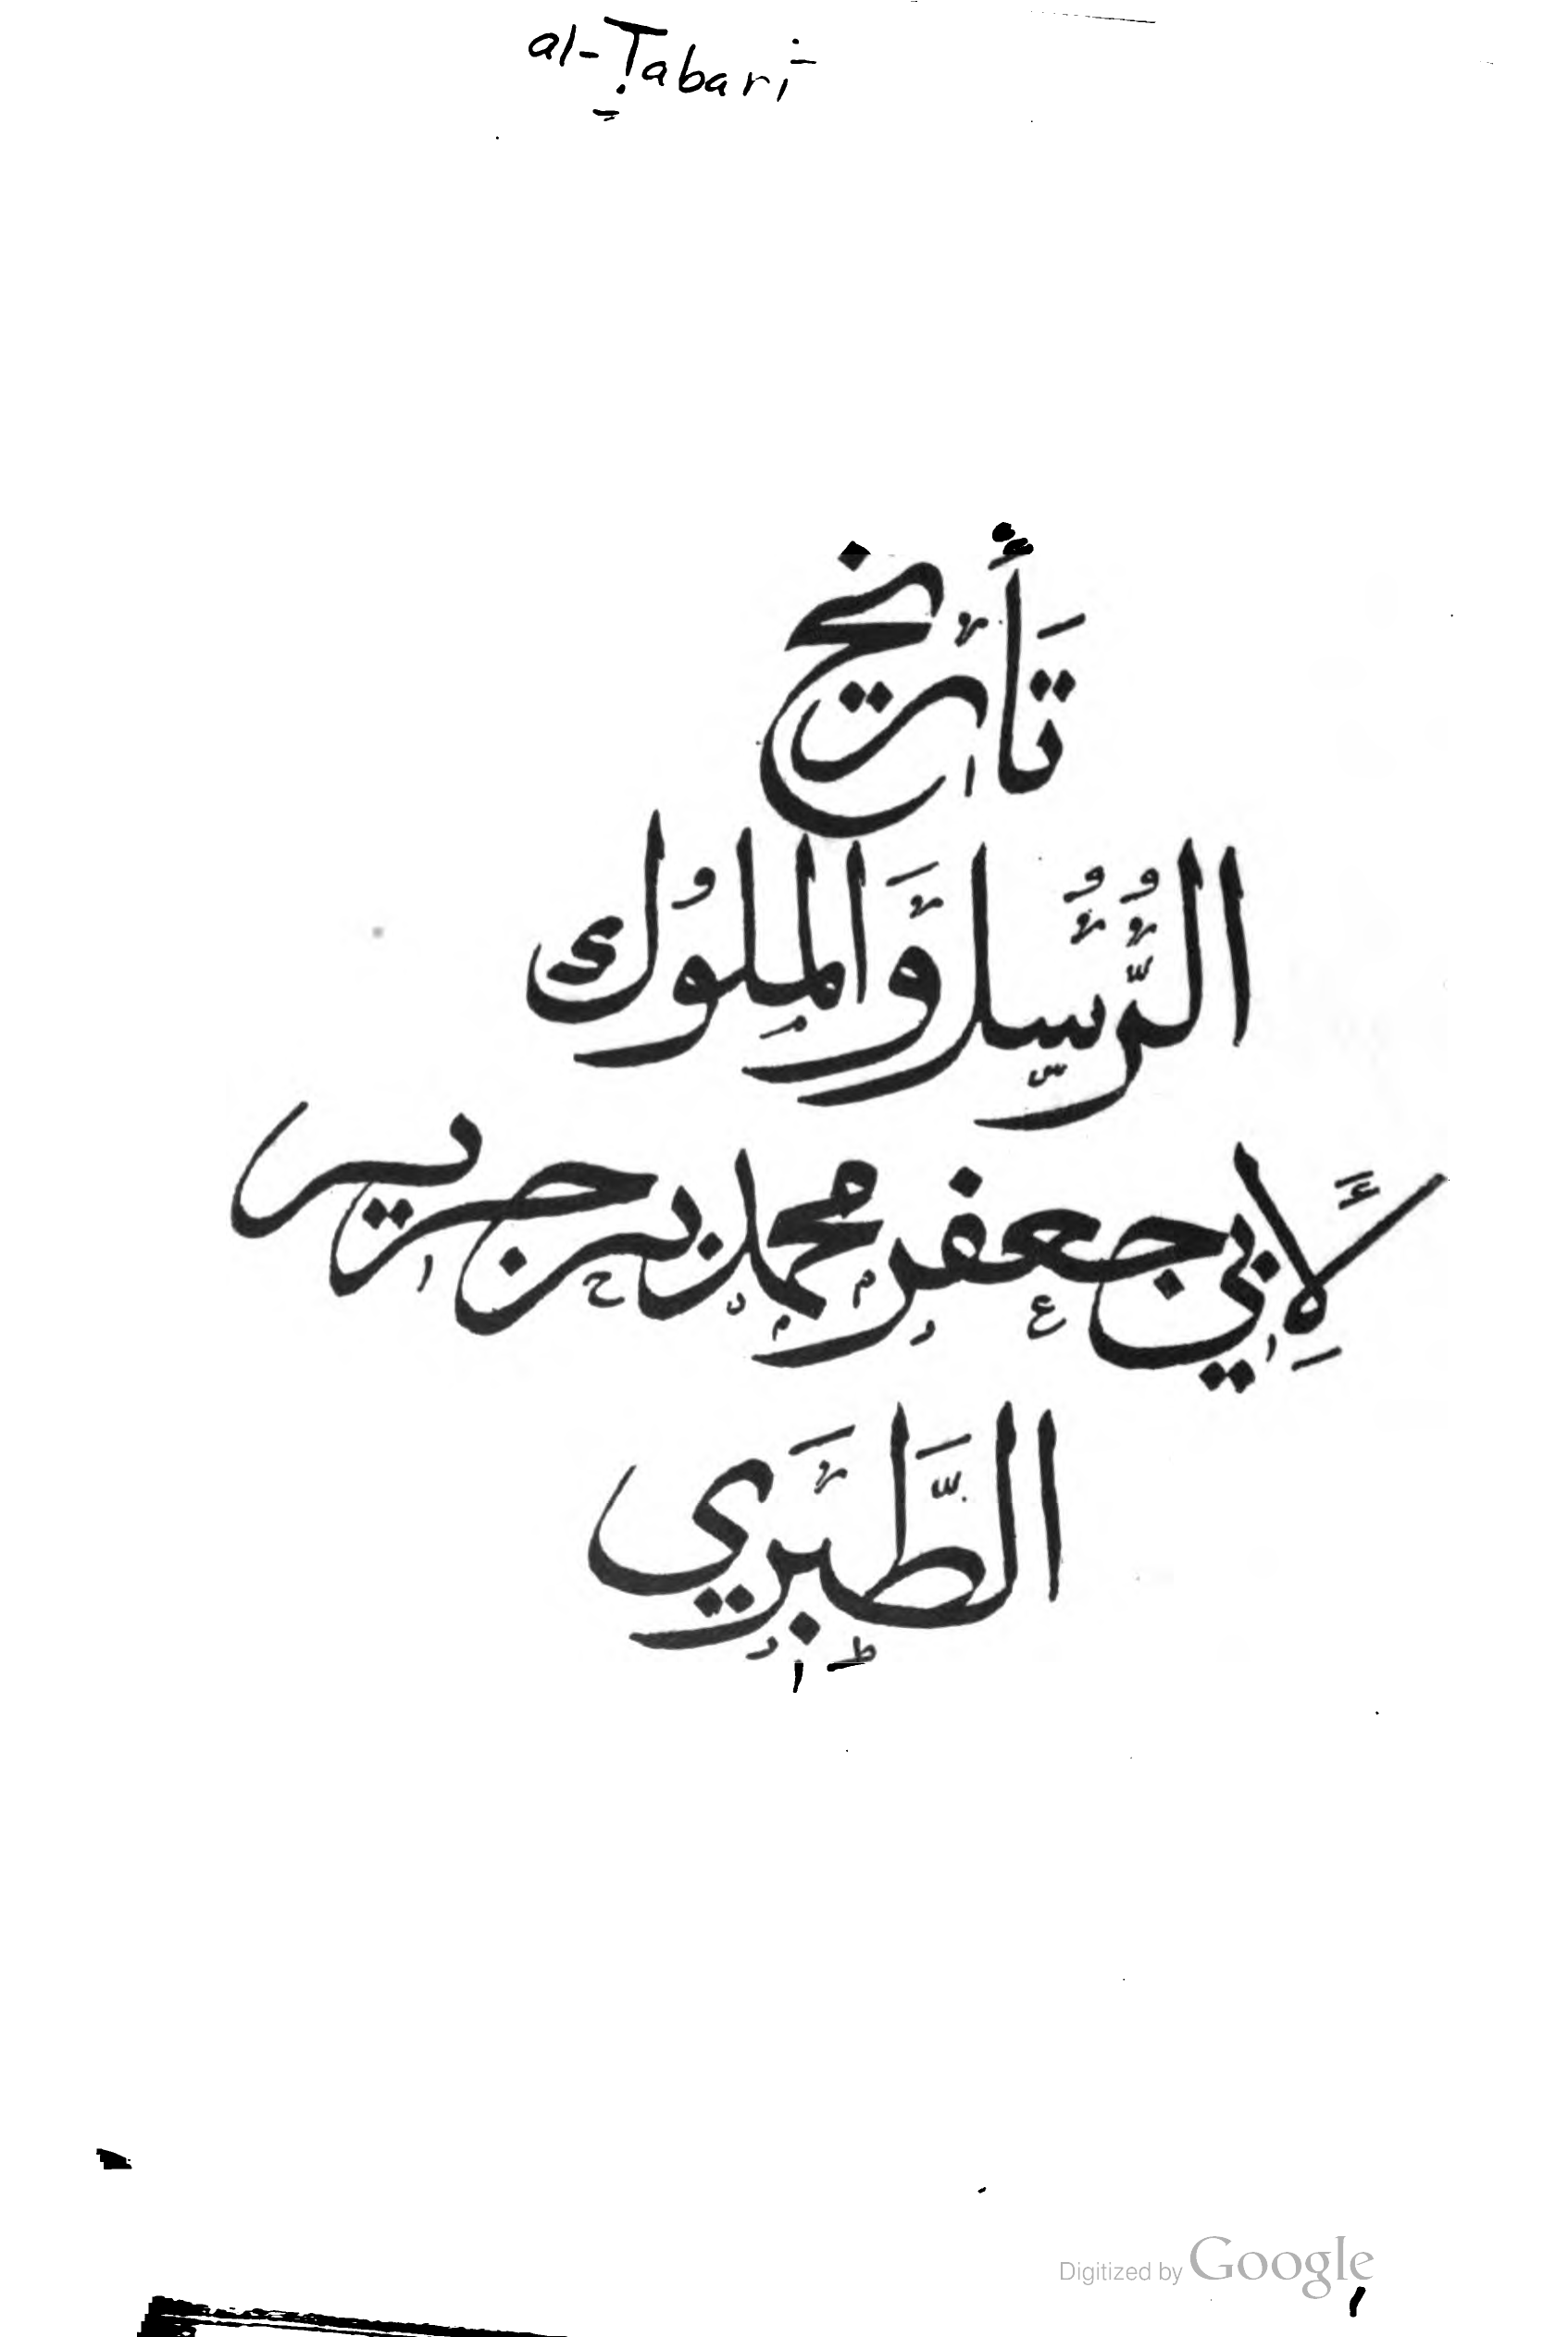 al-Ṭabarī
تأريخ
الرُّسُل وَالملُوك
لأَبي جعفر محمد بن جرير
الطَّبَري
Digitized by Google